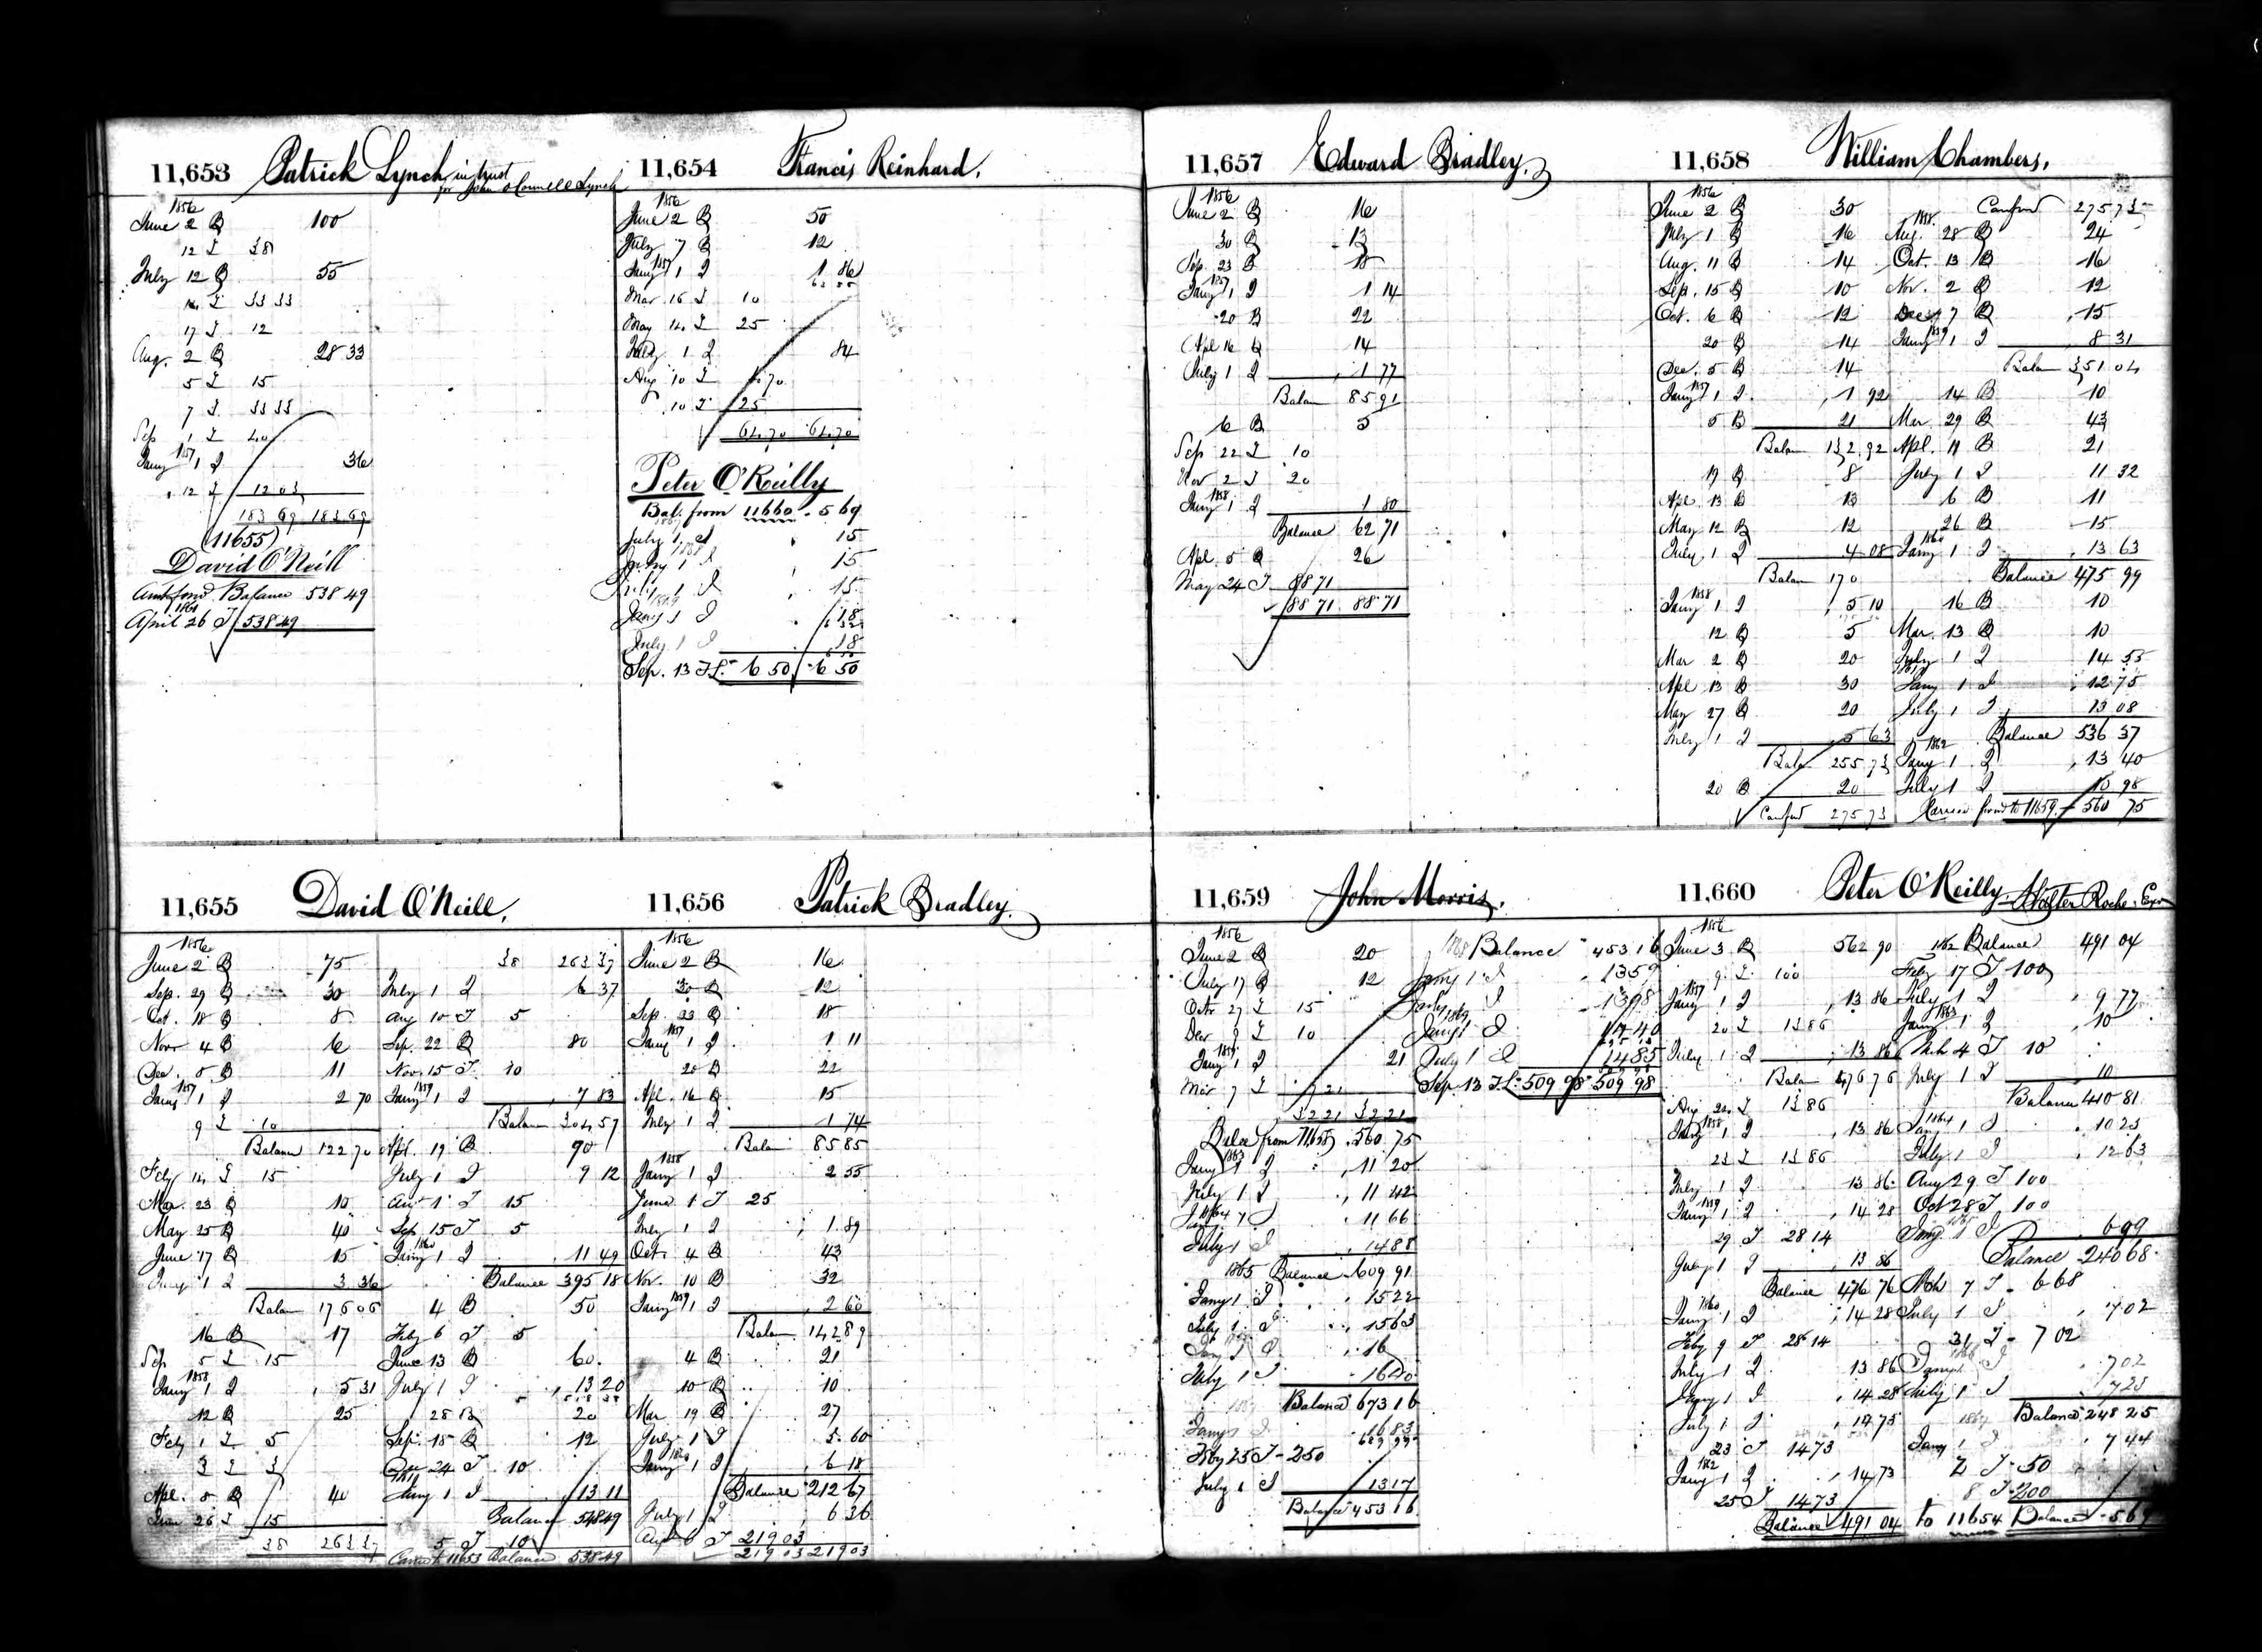 11,653 Patrick Lynch in trust
for John O'Connell Lynch
1856
June 2 B 100
12 I 38
July 12 B 55
14 I 33 33
17 I 12
Aug. 2 B 28 33
5 I 15
7 I 33 33
Sep 1 I 40
1857
Jany 1 I 36
12 I 12 03
183 69 183 69
(11655)
David O'Neill
Amt ford Balance 538 49
1861
April 26 I 538 49
11,654 Francis Reinhard.
1856
June 2 B 50
July 7 B 12
1857
Jany 1 I 1 86
Mar 16 I 10
May 14 I 25
July 1 I 84
Aug 10 I 4 70
10 I 25
64 70 64 70
Peter O'Reilly
Bal. from 11660 - 5 69
1867
July 1 I 15
1868
Jany 1 I 15
July 1 I 15
1869
Jany 1 I 18
July 1 I 18
Sep. 13 I L. 6 50 6 50
11,655 David O'Neill.
1856
June 2 B 75
Sep. 29 B 30
Oct. 18 B 8
Novr 4 B 6
Dec. 8 B 11
1857
Jany 1 I 2 70
9 I 10
Balance 122 70
Feby 14 I 15
Mar. 23 B 10
May 25 B 40
June 17 B 15
July 1 I 3 36
Balan 176 06
16 B 17
Sep 5 I 15
1858
Jany 1 I 5 31
12 B 25
Feby 1 I 5
3 I 3
Apl. 8 B 40
June 26 I 15
38 263 37
38 263 37
July 1 I 6 37
Aug 10 I 5
Sep. 22 B 80
Nov. 15 I 10
1859
Jany 1 I 7 83
Balan 304 57
Apl. 19 B 90
July 1 I 9 12
Aug 1 I 15
Sep 15 I 5
1860
Jany 1 I 11 49
Balance 395 18
4 B 50
Feby 6 I 5
June 13 B 60
July 1 I 13 20
28 B 20
Sep. 15 B 12
24 I 10
1861
Jany 1 I 13 11
Balance 548 49
5 I 10
Carrd to 11653 Balance 538 49
11,656 Patrick Bradley.
1856
June 2 B 16
30 B 12
Sep. 23 B 18
1857
Jany 1 I 1 11
20 B 22
Apl. 16 B 15
July 1 I 1 74
Balan 85 85
1858
Jany 1 I 2 55
June 1 I 25
July 1 I 1 89
Octr 4 B 43
Nov. 10 B 32
1859
Jany 1 I 2 60
Balan 142 89
4 B 21
10 B 10
Mar 19 B 27
July 1 I 5 60
1860
Jany 1 I 6 18
Balance 212 67
July 1 I 6 36
Aug 6 I 219 03
219 03 219 03
11,657 Edward Bradley.
1856
June 2 B 16
30 B 13
Sep. 23 B 18
1857
Jany 1 I 1 14
20 B 22
Apl 16 B 14
July 1 I 1 77
Balan 85 91
6 B 5
Sep 22 I 10
Nov 2 I 20
1858
Jany 1 I 1 80
Balance 62 71
Apl. 5 B 26
May 24 I 88 71
88 71 88 71
11,658 William Chambers.
1856
June 2 B 30
July 1 B 16
Aug. 11 B 14
Sep. 15 B 10
Oct. 6 B 12
20 B 14
Dec. 5 B 14
1857
Jany 1 I 1 92
5 B 21
Balan 132 92
19 B 8
Apl. 13 B 13
May 12 B 12
July 1 I 4 08
Balan 170
1858
Jany 1 I 5 10
12 B 5
Mar 2 B 20
Apl 13 B 30
May 27 B 20
July 1 I 5 63
Balan 255 73
20 B 20
Carrford 275 73
Carrford 275 73
1858
Aug. 28 B 24
Oct. 13 B 16
Nov. 2 B 12
Dec 7 B 15
1859
Jany 1 I 8 31
Balan 351 04
14 B 10
Mar. 29 B 43
Apl. 11 B 21
July 1 I 11 32
6 B 11
26 B 15
1860
Jany 1 I 13 63
Balance 475 99
16 B 10
Mar. 13 B 10
July 1 I 14 55
1861
Jany 1 I 12 75
July 1 I 13 08
Balance 536 37
1862
Jany 1 I 13 40
July 1 I 10 98
Carried forwd to 11659 - 560 75
11,659 John Morris.
1856
June 2 B 20
July 17 B 12
Octr 27 I 15
Decr 9 I 10
1857
Jany 1 I 21
Mar 7 I 7 21
32 21 32 21
Balce from 11658 560 75
1863
Jany 1 I 11 20
July 1 I 11 42
1864
Jany 1 I 11 66
July 1 I 14 88
1865 Balance 609 91
Jany 1 I 15 22
July 1 I 15 63
Jany 1 I 16
July 1 I 16 40
1867 Balance 673 16
Jany 1 I 16 83
Feby 25 I 250
July 1 I 13 17
Balance 453 16
1868 Balance 453 16
Jany 1 I 13 59
July 1 I 13 98
1869
Jany 1 I 14 40
July 1 I 14 85
Sep. 13 I L. 509 98 509 98
11,660 Peter O'Reilly Walter Roche Exr
1856
June 3 B 562 90
9 I 100
1857
Jany 1 I 13 86
20 I 13 86
July 1 I 13 86
Balan 476 76
Aug 24 I 13 86
1858
Jany 1 I 13 86
23 I 13 86
July 1 I 13 86
1859
Jany 1 I 14 28
29 I 28 14
July 1 I 13 86
Balance 476 76
1860
Jany 1 I 14 28
Feby 9 I 28 14
July 1 I 13 86
Jany 1 I 14 28
July 1 I 14 73
23 I 14 73
1862
Jany 1 I 14 73
25 I 14 73
Balance 491 04
1862 Balance 491 04
Feby 17 I 100
July 1 I 9 77
1863
Jany 1 I 10
Mch 4 I 10
July 1 I 10
Balance 410 81
1864
Jany 1 I 10 23
July 1 I 12 63
Aug 29 I 100
Oct 28 I 100
Jany 1 I
Balance 240 68
Mch 7 I 6 68
July 1 I 7 02
31 I 7 02
1866
Jany 1 I 7 02
July 1 I 7 23
1867 Balance 248 25
Jany 1 I 7 44
I 50
8 I 200
to 11654 Balance - 5 69